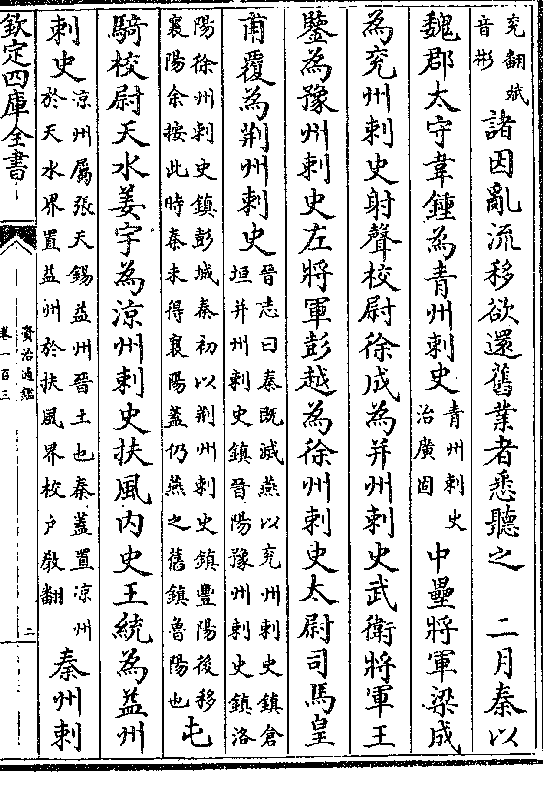 兖翻斌
音彬
諸因亂流移欲還舊業者悉聽之　二月秦以
魏郡太守韋鍾為青州刺史
青州刺史
治廣固
中壘將軍梁成
為兖州刺史射聲校尉徐成為并州刺史武衛將軍王
鑒為豫州刺史左將軍彭越為徐州刺史太尉司馬皇
甫覆為荆州刺史
晉志曰秦既滅燕以兖州刺史鎮倉
垣并州刺史鎮晉陽豫州刺史鎮洛
陽徐州刺史鎮彭城秦初以荆州刺史鎮豐陽後移
襄陽余按此時秦未得襄陽蓋仍燕之舊鎮魯陽也
屯
騎校尉天水姜宇為涼州刺史扶風内史王統為益州
刺史
涼州屬張天錫益州晉土也秦蓋置涼州
於天水界置益州於扶風界校户敎翻
秦州刺
欽定四庫全書
資治通鑑
卷一百三
二